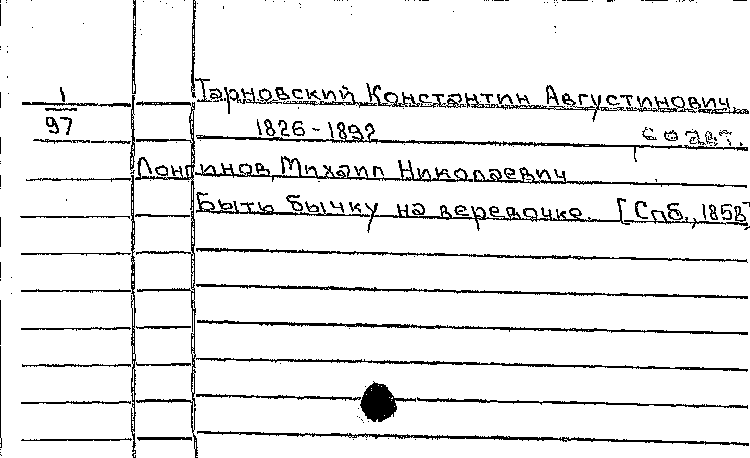 1 Тарновский, Константин Августинович,
97 1826-1892 соавт.
Лонгинов, Михаил Николаевич
Быть бычку на веревочке. [Спб., 1858]